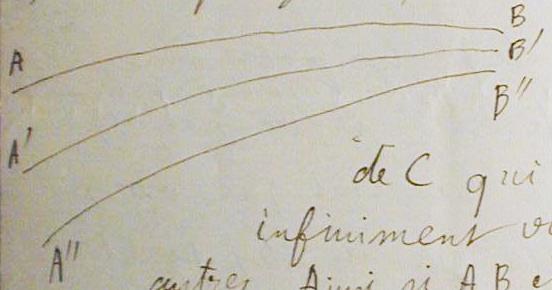 A B
A' B'
A'' B''
de C qui
infiniment
autres Ainsi si A B